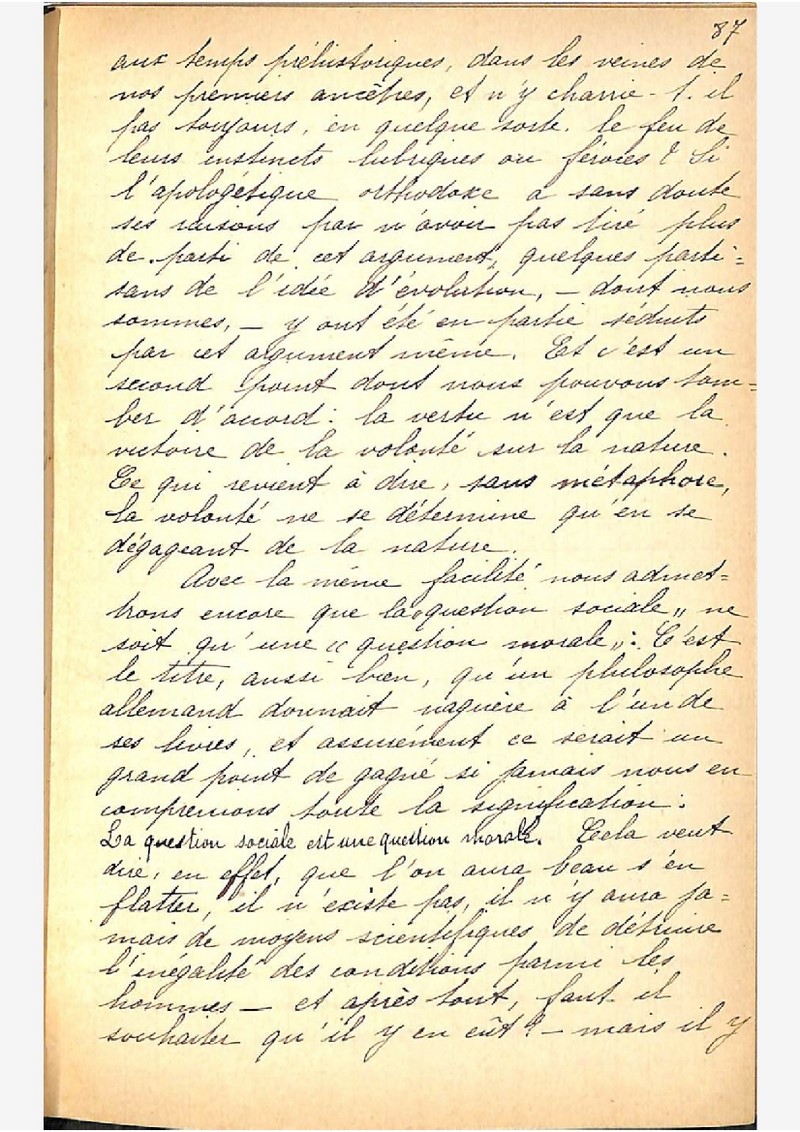 87
aux temps préhistoriques, dans les veines de
nos premiers ancêtres, et n'y charrie-t-il
pas toujours, en quelque sorte, le feu de
leurs instincts lubriques ou féroces ? Si
l'apologétique orthodoxe a sans doute
ses raisons par n'avoir pas tiré plus
de parti de cet argument, quelques parti=
sans de l'idée d'évolution, — dont nous
sommes, — y ont été en partie séduits
par cet argument même. Et c'est un
second point dont nous pouvons tom=
ber d'accord : la vertu n'est que la
victoire de la volonté sur la nature.
Ce qui revient à dire, sans métaphore,
la volonté ne se détermine qu'en se
dégageant de la nature.
Avec la même facilité nous admet=
trons encore que la "question sociale" ne
soit qu'une "question morale" : C'est
le titre, aussi bien, qu'un philosophe
allemand donnait naguère à l'un de
ses livres, et assurément ce serait un
grand point de gagné si jamais nous en
comprenions toute la signification :
La question sociale est une question morale. Cela veut
dire, en effet, que l'on aura beau s'en
flatter, il n'existe pas, il n'y aura ja=
mais de moyens scientifiques de détruire
l'inégalité des conditions parmi les
hommes — et après tout, faut-il
souhaiter qu'il y en eût ? — mais il y